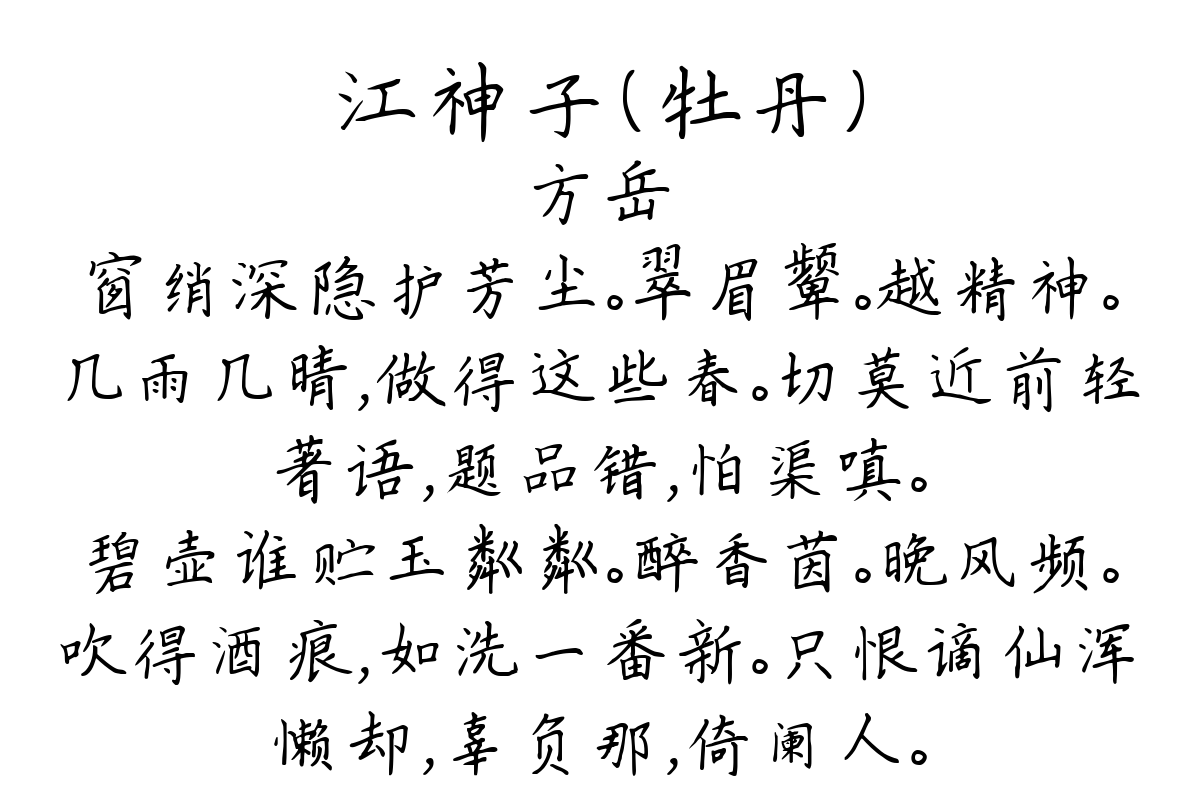 江神子(牡丹)
方岳
窗绡深隐护芳尘。翠眉颦。越精神。
几雨几晴,做得这些春。切莫近前轻
著语,题品错,怕渠嗔。
碧壶谁贮玉粼粼。醉香茵。晚风频。
吹得酒痕,如洗一番新。只恨谪仙浑
懒却,辜负那,倚阑人。